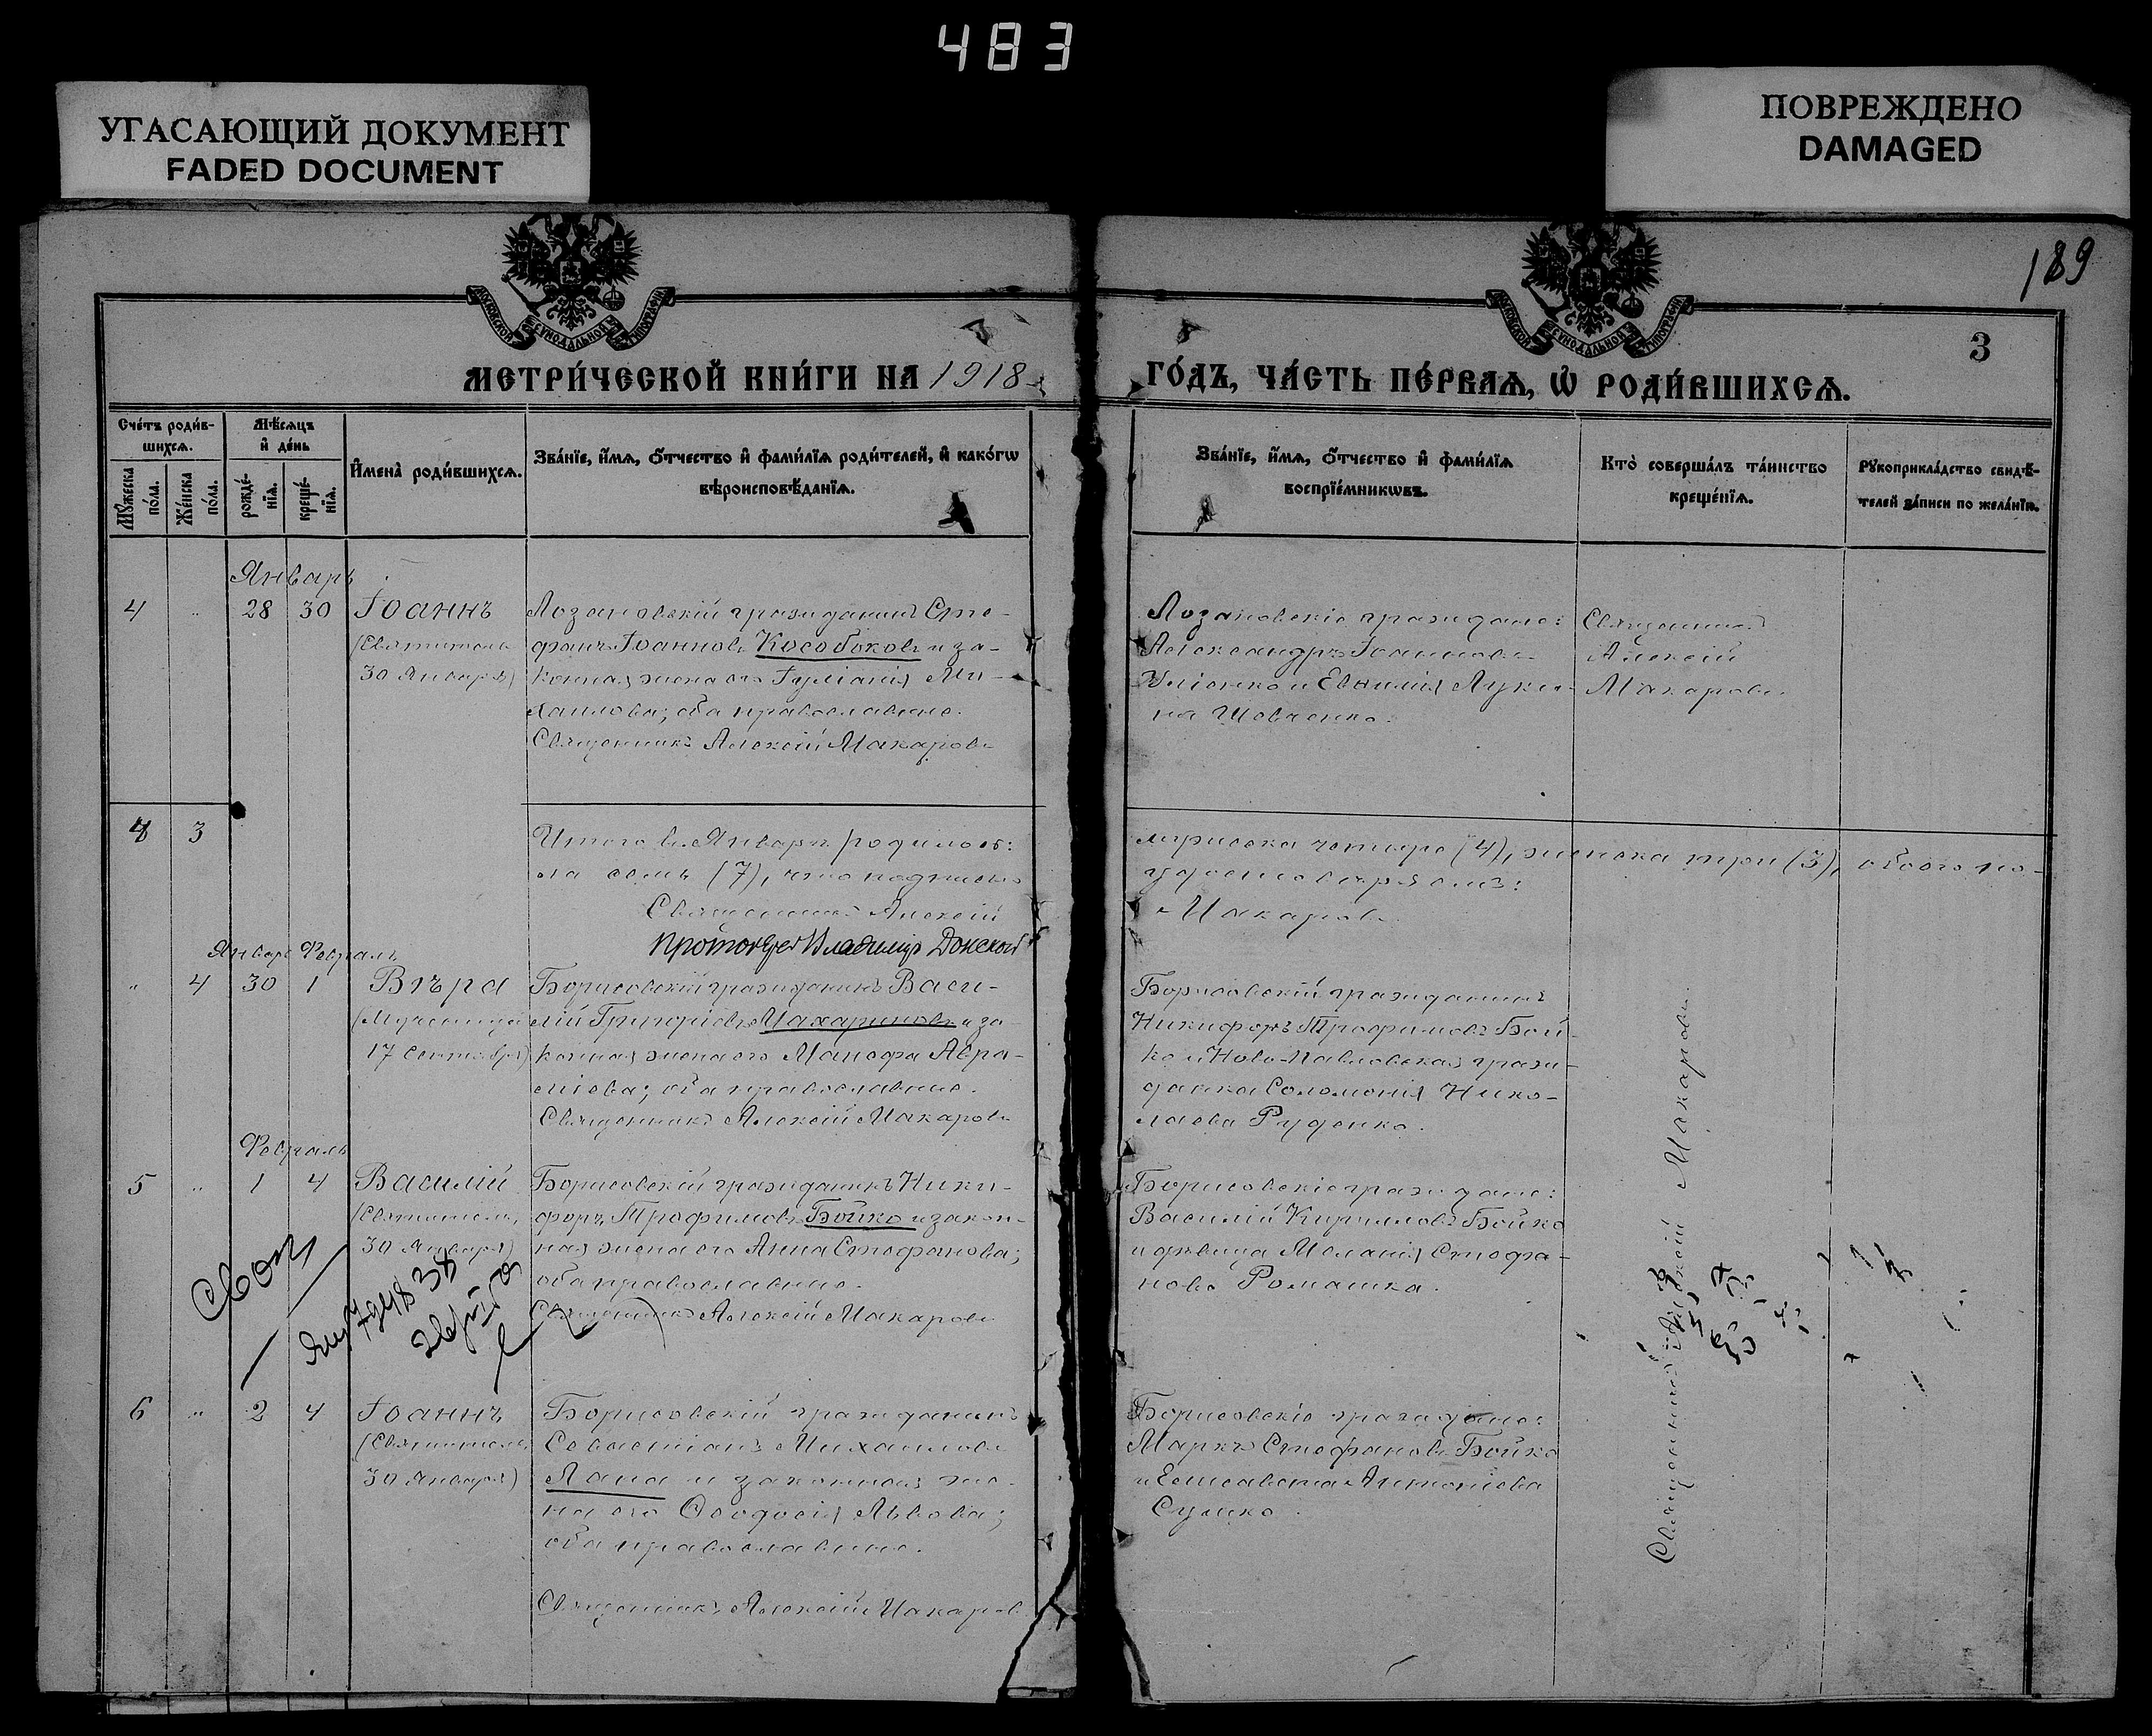 483
УГАСАЮЩИЙ ДОКУМЕНТ
FADED DOCUMENT
ПОВРЕЖДЕНО
DAMAGED
189
3
МОСКОВСКОЙ СѴНОДАЛЬНОЙ ТИПОГРАФІИ
МОСКОВСКОЙ СѴНОДАЛЬНОЙ ТИПОГРАФІИ
МЕТРИ́ЧЕСКОЙ КНИ́ГИ НА 1918
ГО́ДЪ, ЧА́СТЬ ПЕ́РВАѦ, Ѡ РОДИ́ВШИХСѦ.
Сче́тъ роди́в-
шихсѧ.
Мꙋ́жеска по́ла.
Же́нска по́ла.
Мѣ́сѧцъ
и҆ де́нь
рожде́-
нїѧ.
креще́-
нїѧ.
И҆мена̀ роди́вшихсѧ.
Зва́нїе, и҆́мѧ, ѻ҆́тчество и҆ фами́лїѧ роди́телей, и҆ како́гѡ
вѣроисповѣ́данїѧ.
Зва́нїе, и҆́мѧ, ѻ҆́тчество и҆ фами́лїѧ
воспрїе́мникѡвъ.
Кто̀ соверша́лъ та́инство
креще́нїѧ.
Рꙋкоприкла́дство свидѣ́-
телей за́писи по жела́нїю.
Январь
4 " 28 30 Іоаннъ
(Святитель
30 Января)
Лозановскій гражданинъ Сте-
фанъ Іоанновъ Кособоковъ и за-
конная жена его Іуліанія Ми-
хаилова; оба православные.
Священникъ Алексій Макаровъ
Лозановскіе граждане:
Александръ Іоанновъ
и Евфимія Луки-
на Шевченко.
Священникъ
Алексій
Макаровъ.
4 3
Итого въ Январѣ родилось:
мужеска четыре (4), женска три (3), обоего по-
ла семь (7), что подписью
удостовѣряемъ:
Священникъ Алексій
Макаровъ
Протоіерей Владиміръ Донской
Январь Февраль
" 4 30 1 Вѣра
(Мученица
17 Сентября)
Борисовскій гражданинъ Васи-
лій Григорьевъ Махариновъ и за-
конная жена его Манефа Авра-
міева; оба православные.
Священникъ Алексій Макаровъ
Борисовскій гражданинъ
Никифоръ Трофимовъ Бой-
ко и Ново-Павловская граж-
данка Соломонія Нико-
лаева Руденко.
Февраль
5 " 1 4 Василій
(Святитель
30 Января)
Борисовскій гражданинъ Ники-
форъ Трофимовъ Бойко и закон-
ная жена его Анна Стефанова;
оба православные.
Священникъ Алексій Макаровъ
Борисовскіе граждане:
Василій Кирилловъ Бойко
и дѣвица Меланія Стефа-
нова Ромашка.
6 " 2 4 Іоаннъ
(Святитель
30 Января)
Борисовскій гражданинъ
Севастіанъ Михаиловъ
Лапа и законная же-
на его Ѳеодосія Львова;
оба православные.
Священникъ Алексій Макаровъ
Борисовскіе граждане:
Маркъ Стефановъ Бойко
и Елисавета Антоніева
Сушко.
Священникъ Алексій Макаровъ.